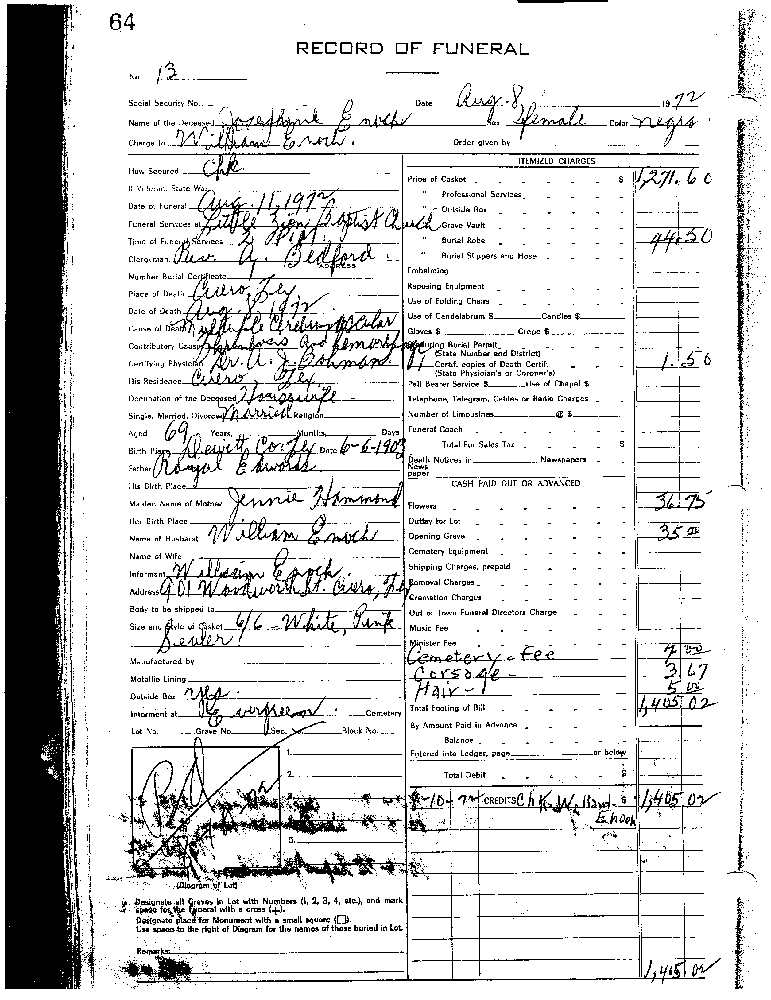 64
RECORD OF FUNERAL
No. 13
Social Security No. Date Aug. 8, 1972
Name of the Deceased Josephine Enoch Sex female Color negro
Charge to William Enoch. Order given by
How Secured Chk
If Veteran, State War
Date of Funeral Aug. 11, 1972
Funeral Services at Little Zion Baptist Church
Time of Funeral Services 2 P.M.
Clergyman Rev. A. Bedford
ADDRESS
Number Burial Certificate
Place of Death Cuero, Tex
Date of Death Aug 8, 1972
Cause of Death Multiple Cerebrovascular
Contributory Cause and hemorrhage
Certifying Physician Dr. A. J.
His Residence Cuero, Tex.
Occupation of the Deceased Housewife
Single, Married, Divorced Married Religion
Aged 69 Years, Months, Days
Birth Place Dewitt Co. Tex Date 6-6-1903
Father Royal Edwards
His Birth Place
Maiden Name of Mother Jennie Hammond
Her Birth Place
Name of Husband William Enoch
Name of Wife
Informant William Enoch
Address 901 Woodworth St. Cuero, Tex
Body to be shipped to
Size and Style of Casket 6/6 - White, Pink
Sealer
Manufactured by
Metallic Lining
Outside Box yes
Interment at Evergreen Cemetery
Lot No. Grave No. Sec. Block No.
1.
2.
5.
(Diagram of Lot)
Designate all Graves in Lot with Numbers (1, 2, 3, 4, etc.), and mark
space for the Funeral with a cross (+).
Designate place for Monument with a small square (□).
Use space to the right of Diagram for the names of those buried in Lot.
Remarks:
ITEMIZED CHARGES
Price of Casket $ 1,271.60
" Professional Services
" Outside Box
" Grave Vault
" Burial Robe 44.50
" Burial Slippers and Hose
Embalming
Reposing Equipment
Use of Folding Chairs
Use of Candelabrum $ Candles $
Gloves $ Crepe $
Including Burial Permit
(State Number and District)
Certif. copies of Death Certif. 1.50
(State Physician's or Coroner's)
Pall Bearer Service $ Use of Chapel $
Telephone, Telegram, Cables or Radio Charges
Number of Limousines @ $
Funeral Coach
Total For Sales Tax $
Death Notices in Newspapers
News
paper
CASH PAID OUT OR ADVANCED
Flowers 36.75
Outlay For Lot
Opening Grave 35 00
Cemetery Equipment
Shipping Charges, prepaid
Removal Charges
Cremation Charges
Out of Town Funeral Directors Charge
Music Fee
Minister Fee
Cemetery - Fee 7 00
Corsage - 3.67
Hair - 5 00
Total Footing of Bill 1,405.02
By Amount Paid in Advance
Balance
Entered into Ledger, page or below
Total Debit $
8-10-72 CREDITS Chk. William $ 1,405.02
Enoch
1,405.02